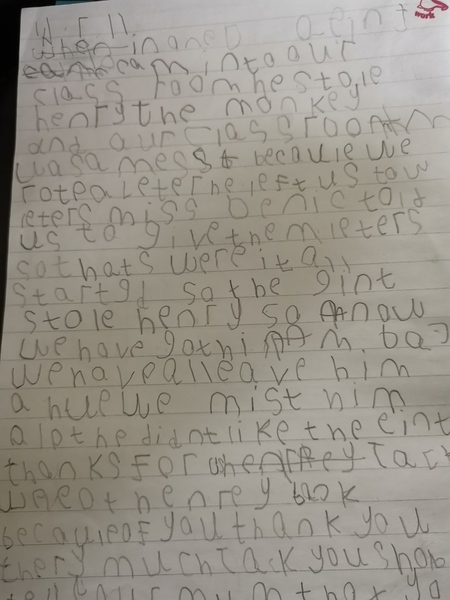 when in a ned a eint
cam into our
class room he stole
henry the monkey
and aur class room
was a mess because we
rote a leter he left us tow
leters miss benic told
us to give them leters
so thats were it all
started so the gint
stole henry so now
we have got him bac
we have all gave him
a hue we mist him
alot he didnt like the eint
thanks for henrey Jack
we geot henrey back
because of you thank you
thery much Jack you shob
tell aur mum that yo
work